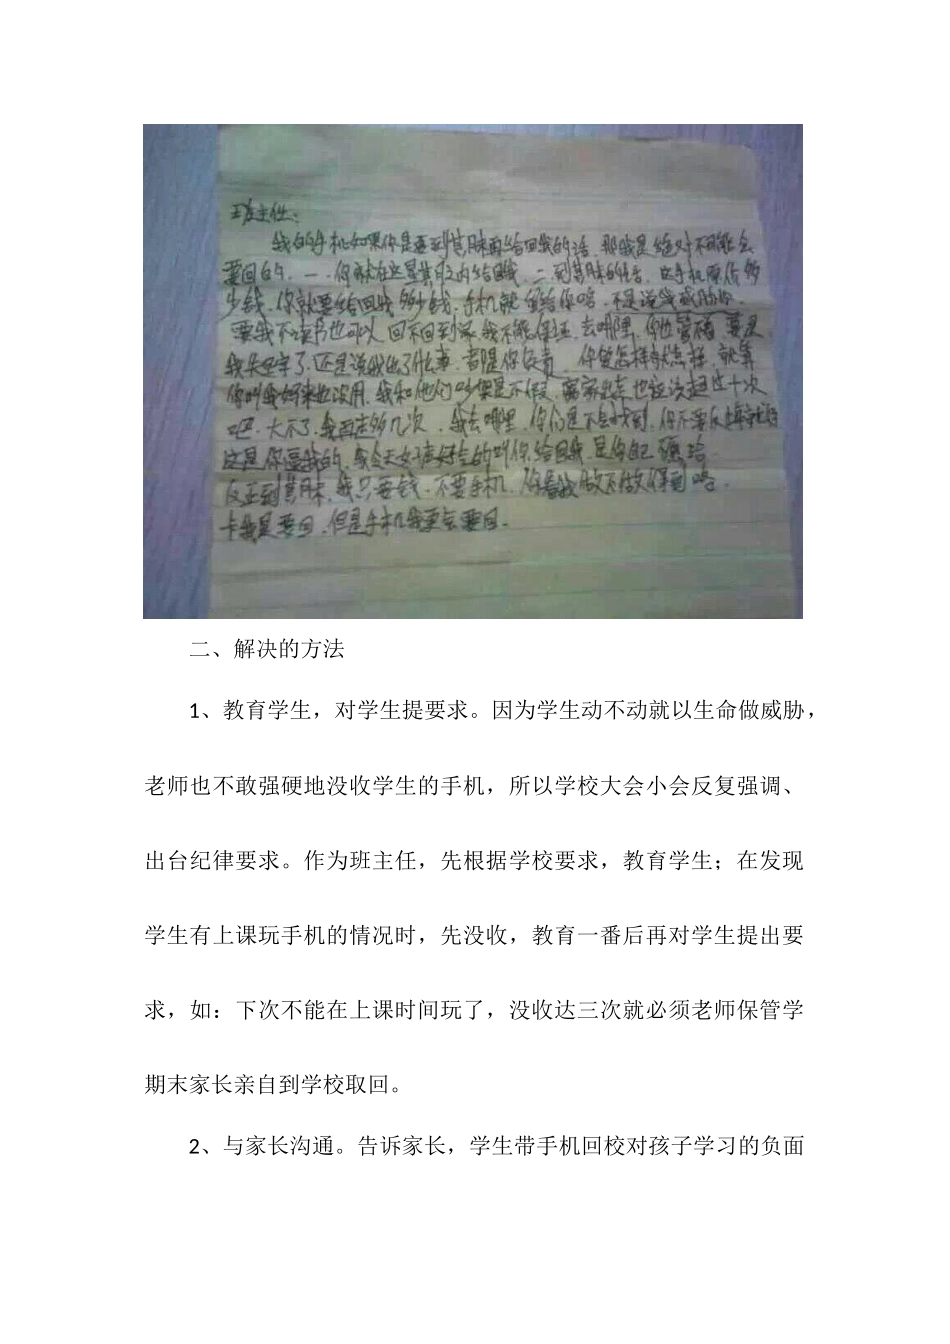 班主任：
我的手机如果你是要到其期末再给回我的话，那我是绝对不可能会
要回的，一、你就在这星期之内给回我，二、到期末的话，这手机原价多
少钱，你就要给回我多少钱，手机就留给你啥，不是说我威胁你，
要我不读书也可以，回不回到家，我不能保证，去哪里，你也管不着，要是
我失踪了，还是说我出了什么事，都是你负责，你爱怎样就怎样，就算
你叫我妈来也没用，我和他们吵架是不假，离家出走也应该超过十次
吧，大不了，我再走多几次，我去哪里，你们是不会找到，你不要
这是你逼我的，我今天好声好气的叫你给回我，是你自己
反正到期末，我只要钱，不要手机，你看我做不做得到咯。
卡我是要回，但是手机我更会要回。
二、解决的方法
1、教育学生，对学生提要求。因为学生动不动就以生命做威胁，
老师也不敢强硬地没收学生的手机，所以学校大会小会反复强调、
出台纪律要求。作为班主任，先根据学校要求，教育学生；在发现
学生有上课玩手机的情况时，先没收，教育一番后再对学生提出要
求，如：下次不能在上课时间玩了，没收达三次就必须老师保管学
期末家长亲自到学校取回。
2、与家长沟通。告诉家长，学生带手机回校对孩子学习的负面